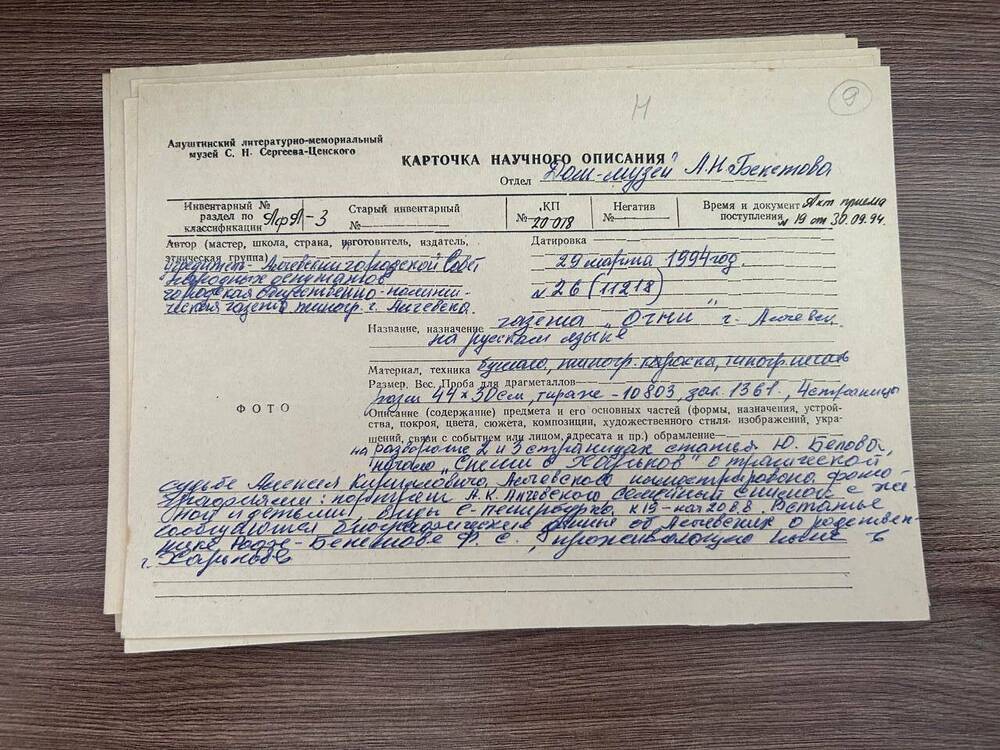 Н
9
Алуштинский литературно-мемориальный
музей С. Н. Сергеева-Ценского
КАРТОЧКА НАУЧНОГО ОПИСАНИЯ
Отдел "Дом-музей" А.Н. Бекетова
Инвентарный №
раздел по
классификации АрА-3
Старый инвентарный
№
КП
№ 20 018
Негатив
№
Время и документ Акт приема
поступления № 19 от 30.09.94.
Автор (мастер, школа, страна, изготовитель, издатель,
этническая группа)
учредитель - Алчевский городской Совет
народных депутатов
городская общественно-полити-
ческая газета типогр. г. Алчевска.
Датировка
29 марта 1994 год.
№ 26 (11218)
Название, назначение газета „Огни" г. Алчевск.
на русском языке
Материал, техника бумага, типогр. краска, типогр. печать
Размер. Вес. Проба для драгметаллов
разм 44×30 см, тираж - 10803, зак. 1361., 4 страницы
ФОТО
Описание (содержание) предмета и его основных частей (формы, назначения, устрой-
ства, покроя, цвета, сюжета, композиции, художественного стиля, изображений, укра-
шений, связи с событием или лицом, адресата и пр.) обрамление
на развороте 2 и 3 страницах статья Ю. Белова,
начало „Спеши в Харьков" о трагической
судьбе Алексея Кирилловича Алчевского иллюстрирована фото-
графиями: портрет А.К. Алчевского семейный снимок с же-
ной и детьми. Виды С-Петербурга к 19 - нач 20 в в. В статье
сообщаются биографические данные об Алчевских о родствен-
нике - Бекетове Ф. С., проживающем ныне в
г. Харькове